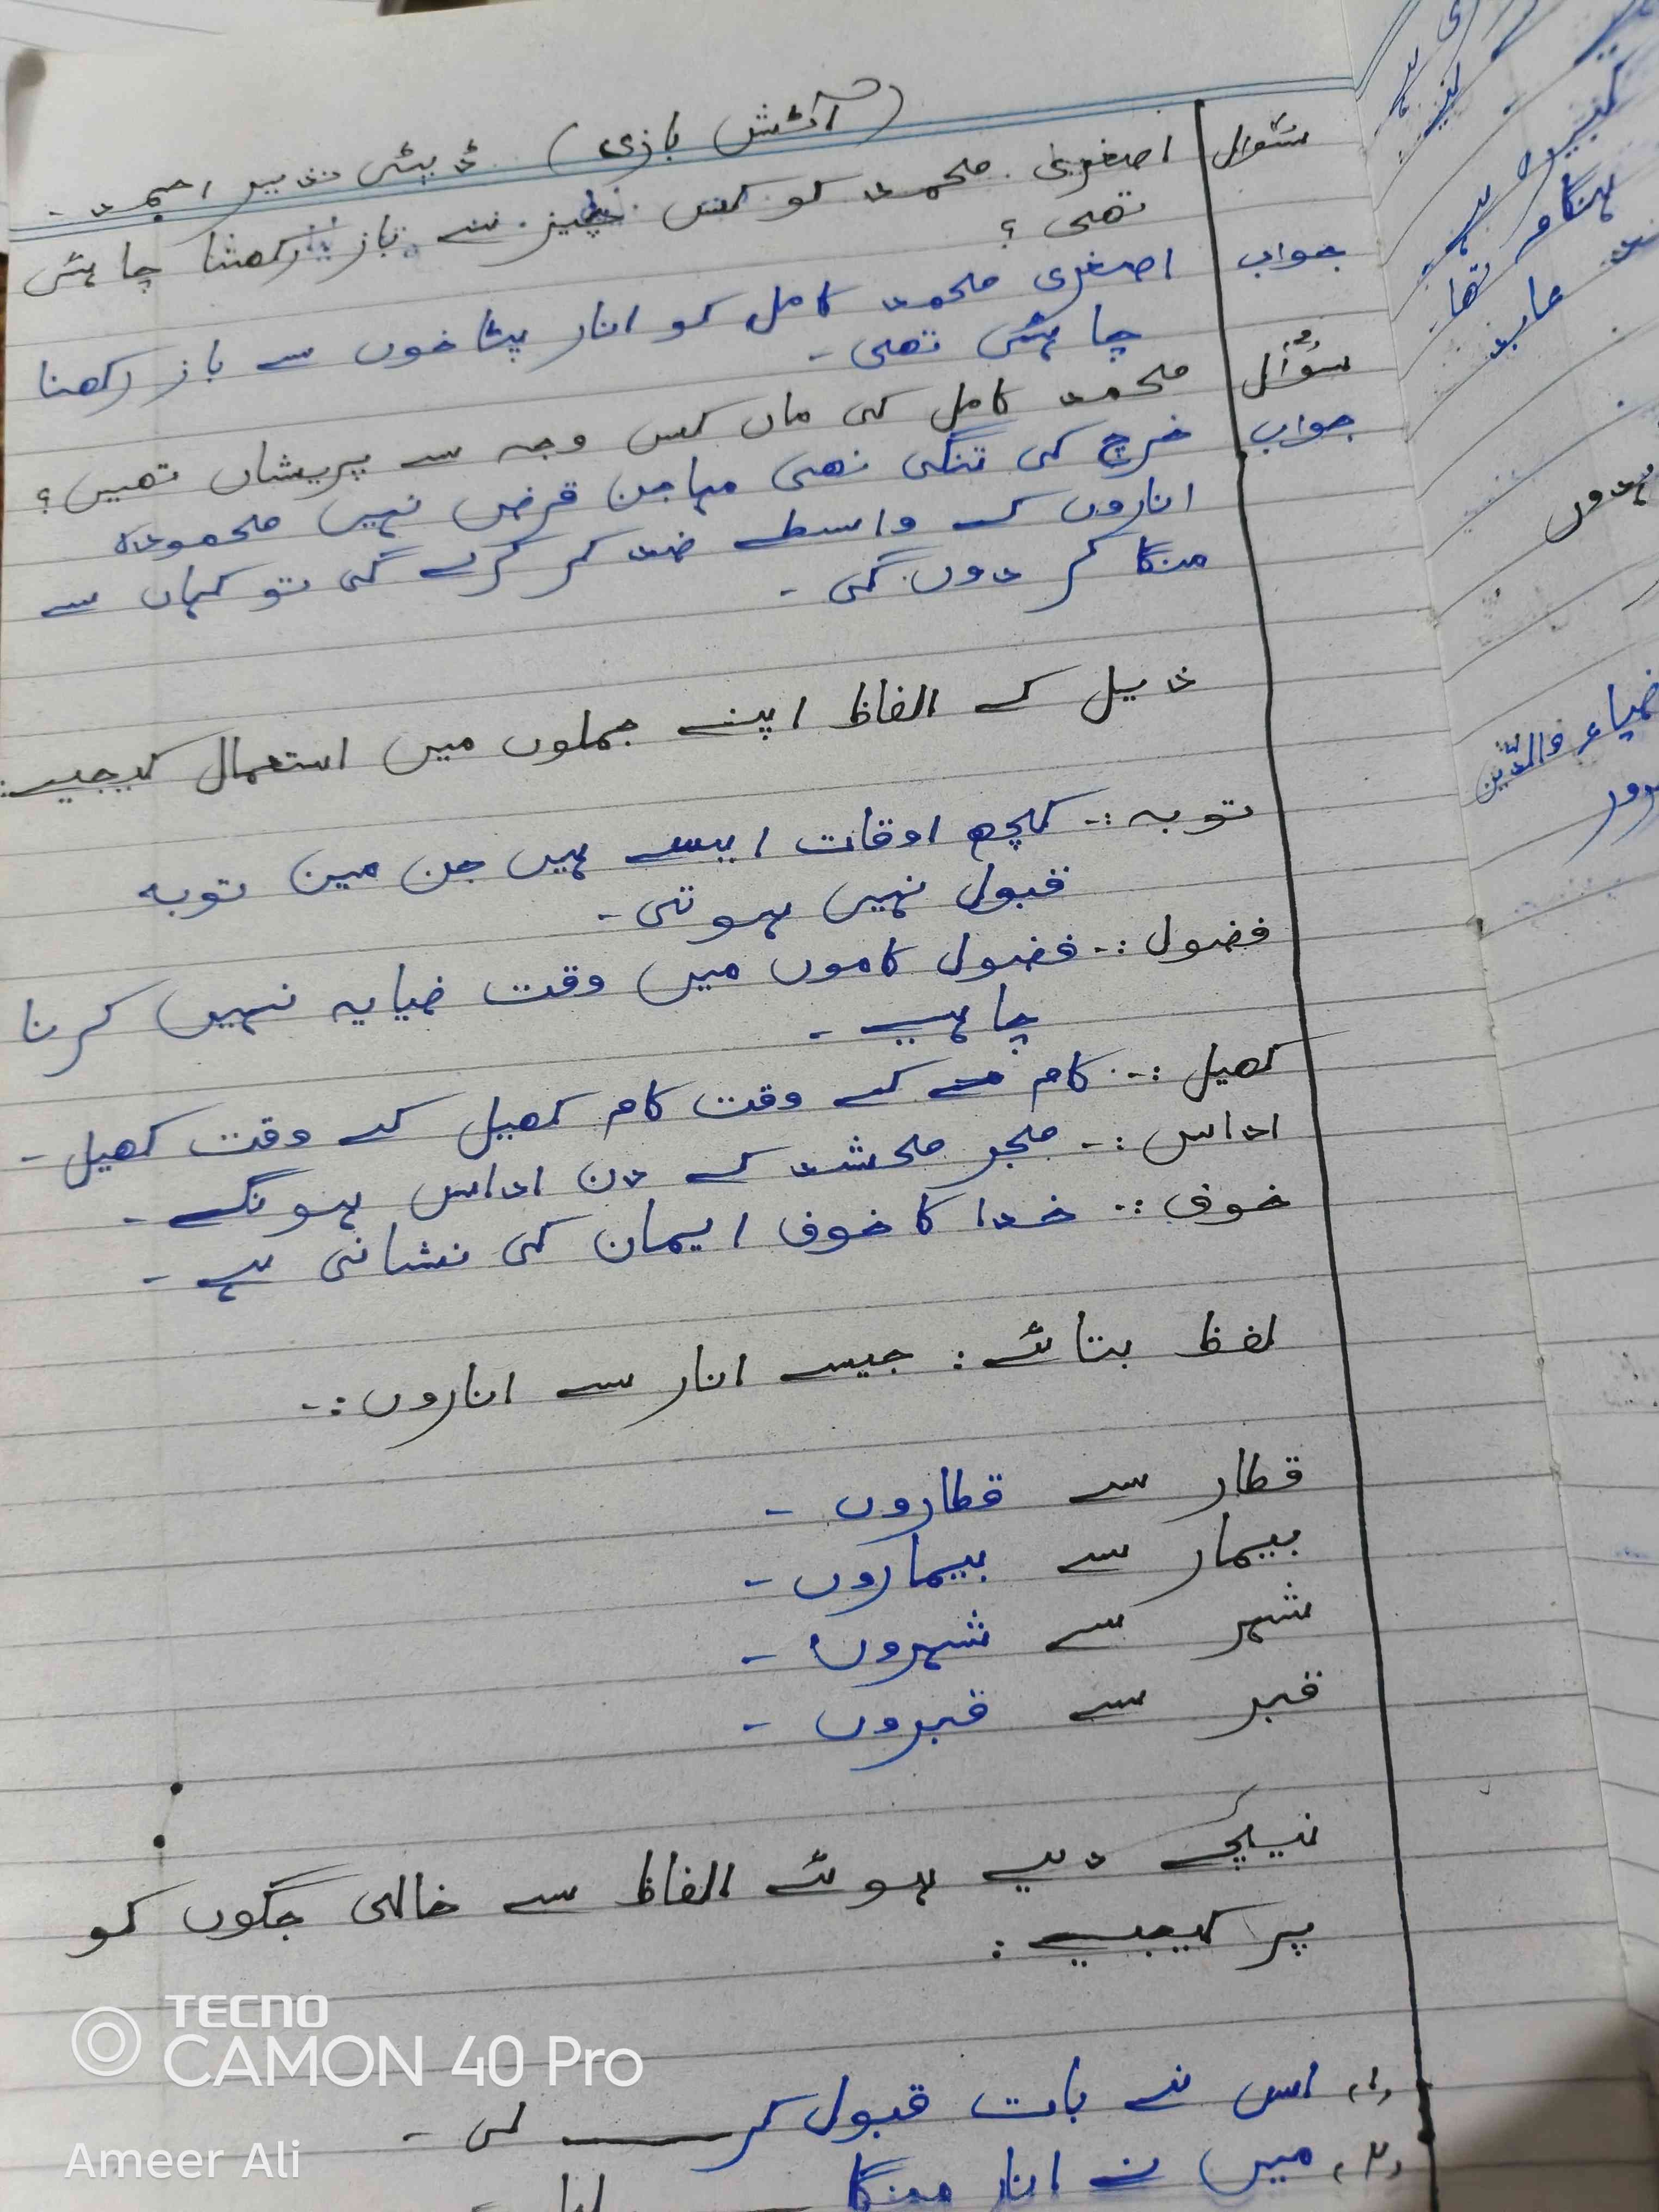 (آتش بازی) ڈپٹی نذیر احمد۔
سوال اصغری محمد کو کس چیز سے باز رکھنا چاہتی
تھی؟
جواب اصغری محمد کامل کو انار پٹاخوں سے باز رکھنا
چاہتی تھی۔
سوال محمد کامل کی ماں کس وجہ سے پریشاں تھیں؟
جواب خرچ کی تنگی تھی مہاجن قرض نہیں محمودہ
اناروں کے واسطے ضد کر کرے گی تو کہاں سے
منگا کر دوں گی۔
ذیل کے الفاظ اپنے جملوں میں استعمال کیجیے:
توبہ :۔ کچھ اوقات ایسے ہیں جن میں توبہ
قبول نہیں ہوتی۔
فضول :۔ فضول کاموں میں وقت ضیایہ نہیں کرنا
چاہیے۔
کھیل :۔ کام کے وقت کام کھیل کے وقت کھیل۔
اداس :۔ محشد کے دن اداس ہونگے۔
خوف :۔ خدا کا خوف ایمان کی نشانی ہے۔
لفظ بتائے : جیسے انار سے اناروں :۔
قطار سے قطاروں۔
بیمار سے بیماروں۔
شہر سے شہروں۔
قبر سے قبروں۔
نیچے دیے ہوئے الفاظ سے خالی جگوں کو
پر کیجیے :
(۱) اس نے بات قبول کر ____ لی۔
(۲) میں نے انار منگا ____ لیا۔
TECNO
CAMON 40 Pro
Ameer Ali
کنیز
ہنگام تھا۔
عابد
ہدوں
ضیاء والدین